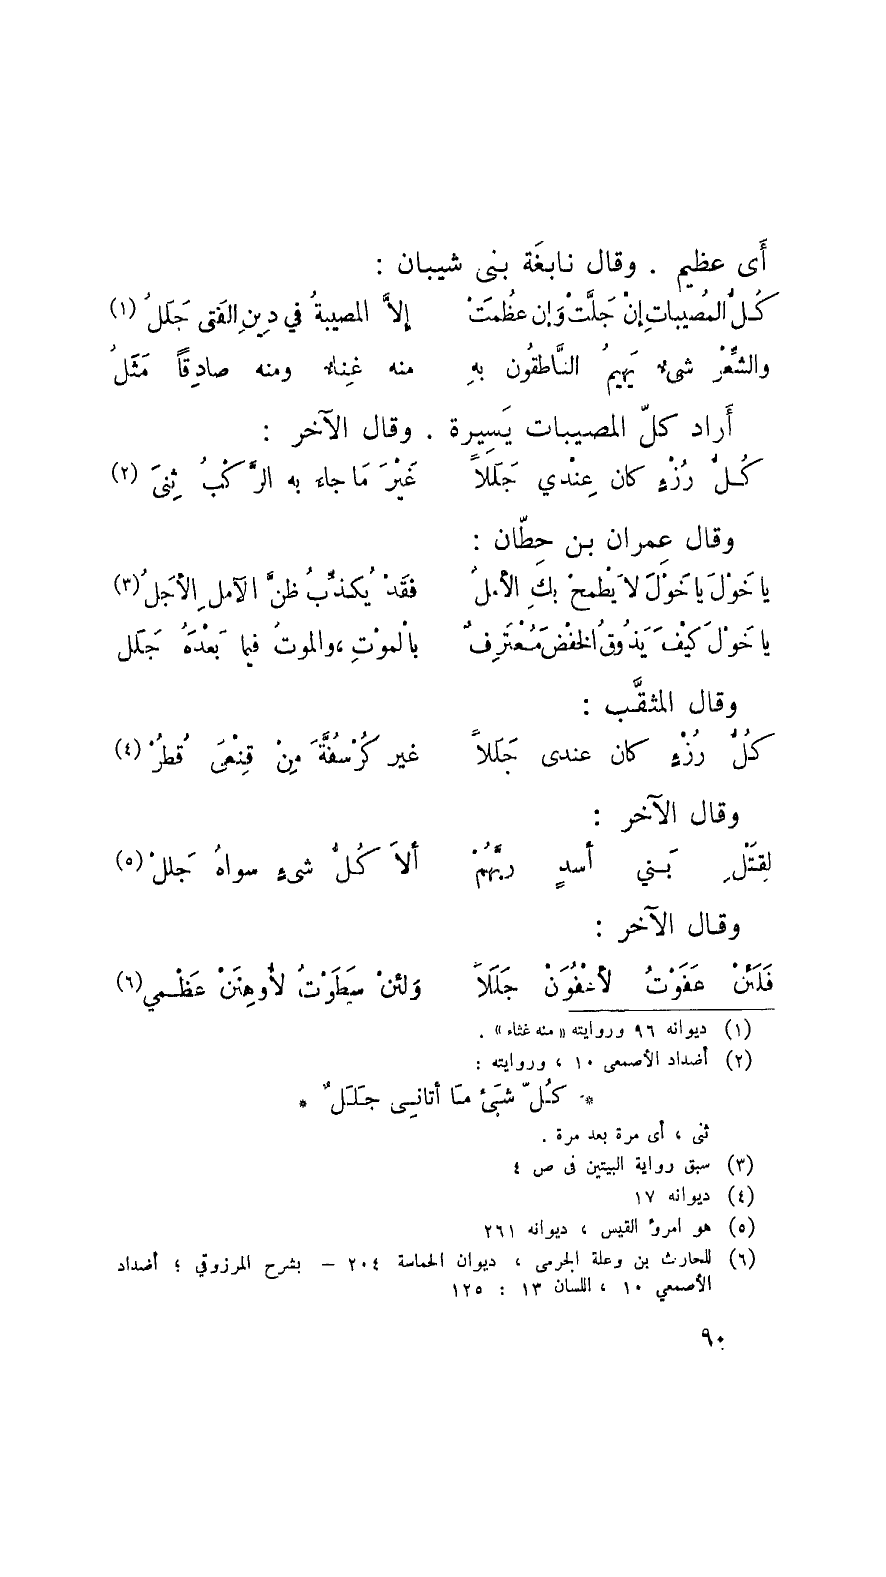 أَى عظيم . وقال نابغَة بنى شيبان :
كُلُّ المُصيباتِ إنْ جَلَّتْ وَإن عظُمَتْ إلاَّ المصيبةُ في دِينِ الفَتى جَلَلُ (١)
والشِّعْرُ شىءٌ يَهِيمُ النَّاطقُون بهِ منه غِناءٌ ومنه صادِقاً مَثَلُ
أَراد كلّ المصيبات يَسِيرة . وقال الآخر :
كُلُّ رُزْءٍ كان عِنْدي جَلَلاً غَيْرَ مَا جاءَ به الرَّكْبُ ثِنىَ (٢)
وقال عِمران بن حِطّان :
يا خَوْلَ يا خَوْلَ لا يَطْمحْ بكِ الأملُ فقَدْ يُكذِّبُ ظنَّ الآملِ الأجلُ (٣)
يا خَوْلَ كَيْفَ يَذُوقُ الخفْضَ مُعْتَرِفٌ بالموْتِ ، والموتُ فيما بَعْدَهُ جَلَل
وقال المثقَّب :
كلُّ رُزْءٍ كان عندى جَلَلاً غير كُرْسُفَّةَ مِنْ قِنْعَى قُطرُ (٤)
وقال الآخر :
لِقتَلِ بَني أسدٍ ربَّهُمْ ألاَ كُلُّ شىءٍ سواهُ جَللْ (٥)
وقال الآخر :
فَلَئنْ عَفَوْتُ لأعْفُوَنْ جَلَلاً وَلئنْ سَطَوْتُ لأُوهِنَنْ عَظْمي (٦)
(١) ديوانه ٩٦ وروايته « منه غثاء » .
(٢) أضداد الأصمعى ١٠ ، وروايته :
* كلّ شىء ما أتانى جَلَلٌ *
ثنى ، أى مرة بعد مرة .
(٣) سبق رواية البيتين فى ص ٤
(٤) ديوانه ١٧
(٥) هو امرؤ القيس ، ديوانه ٢٦١
(٦) للحارث بن وعلة الجرمى ، ديوان الحماسة ٢٠٤ – بشرح المرزوقي ؛ أضداد
الأصمعي ١٠ ، اللسان ١٣ : ١٢٥
٩٠